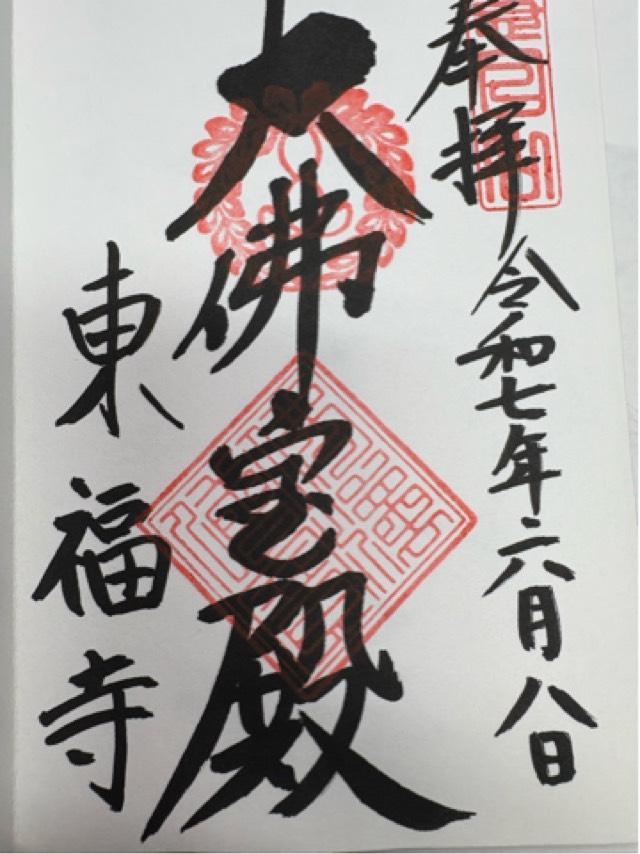 奉拝
令和七年六月八日
大佛宝殿
東福寺